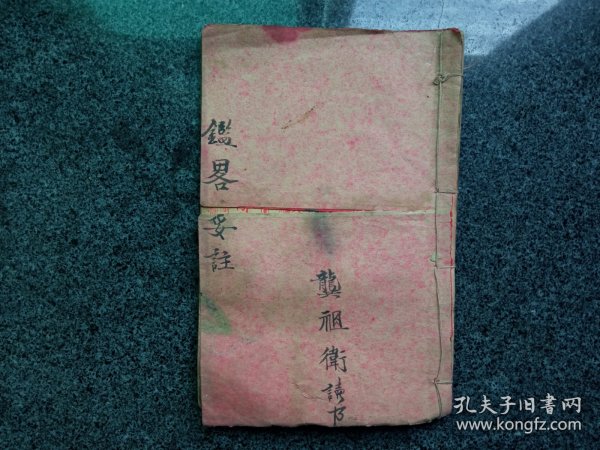 鑑畧妥註
龔祖衛讀书
孔夫子旧書网
www.kongfz.com